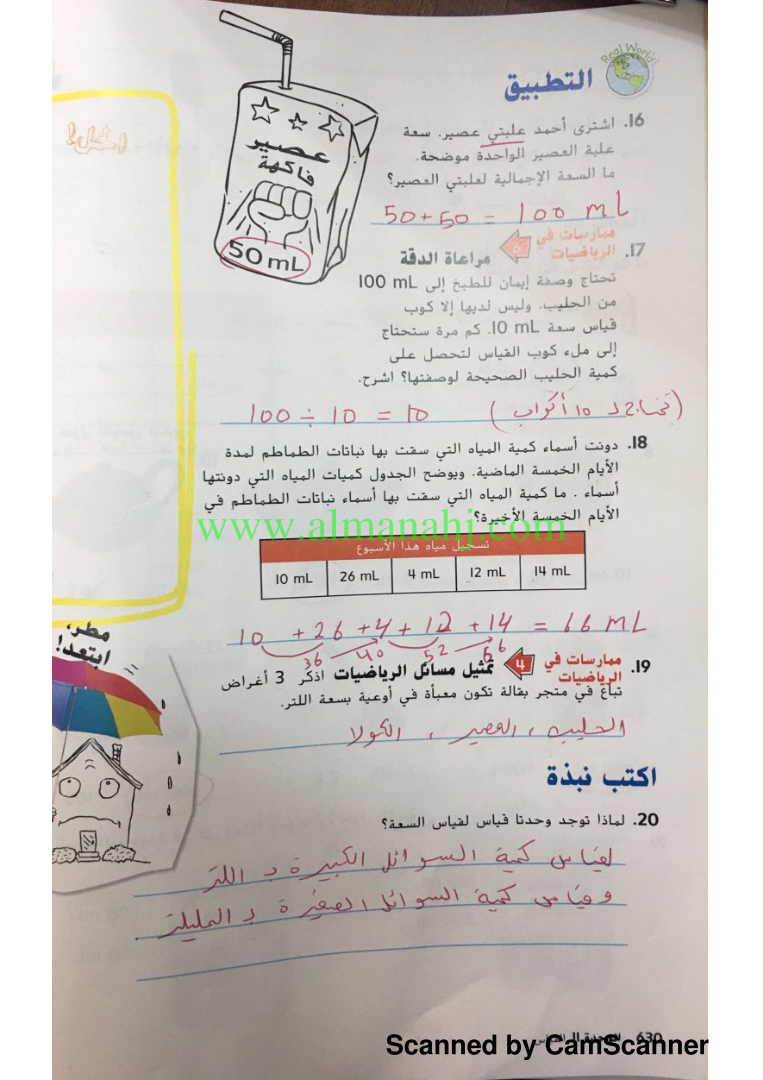 Real World
التطبيق
16. اشترى أحمد علبتي عصير. سعة
علبة العصير الواحدة موضحة.
ما السعة الإجمالية لعلبتي العصير؟
50+50 = 100 mL
عصير
فاكهة
50 mL
17. ممارسات في الرياضيات 6 مراعاة الدقة
تحتاج وصفة إيمان للطبخ إلى 100 mL
من الحليب. وليس لديها إلا كوب
قياس سعة 10 mL. كم مرة ستحتاج
إلى ملء كوب القياس لتحصل على
كمية الحليب الصحيحة لوصفتها؟ اشرح.
100 ÷ 10 = 10 (تحتاج لـ 10 أكواب)
18. دونت أسماء كمية المياه التي سقت بها نباتات الطماطم لمدة
الأيام الخمسة الماضية. ويوضح الجدول كميات المياه التي دونتها
أسماء . ما كمية المياه التي سقت بها أسماء نباتات الطماطم في
الأيام الخمسة الأخيرة؟
www.almanahj.com
تسجيل مياه هذا الأسبوع
10 mL 26 mL 4 mL 12 mL 14 mL
10 + 26 + 4 + 12 + 14 = 66 mL
36 40 52 66
19. ممارسات في الرياضيات 4 تمثيل مسائل الرياضيات اذكر 3 أغراض
تباع في متجر بقالة تكون معبأة في أوعية بسعة اللتر.
الحليب ، العصير ، الكولا
مطر،
ابتعد!
اكتب نبذة
20. لماذا توجد وحدتا قياس لقياس السعة؟
لقياس كمية السوائل الكبيرة بـ اللتر
وقياس كمية السوائل الصغيرة بـ المليلتر
630 الوحدة 11 القياس
Scanned by CamScanner